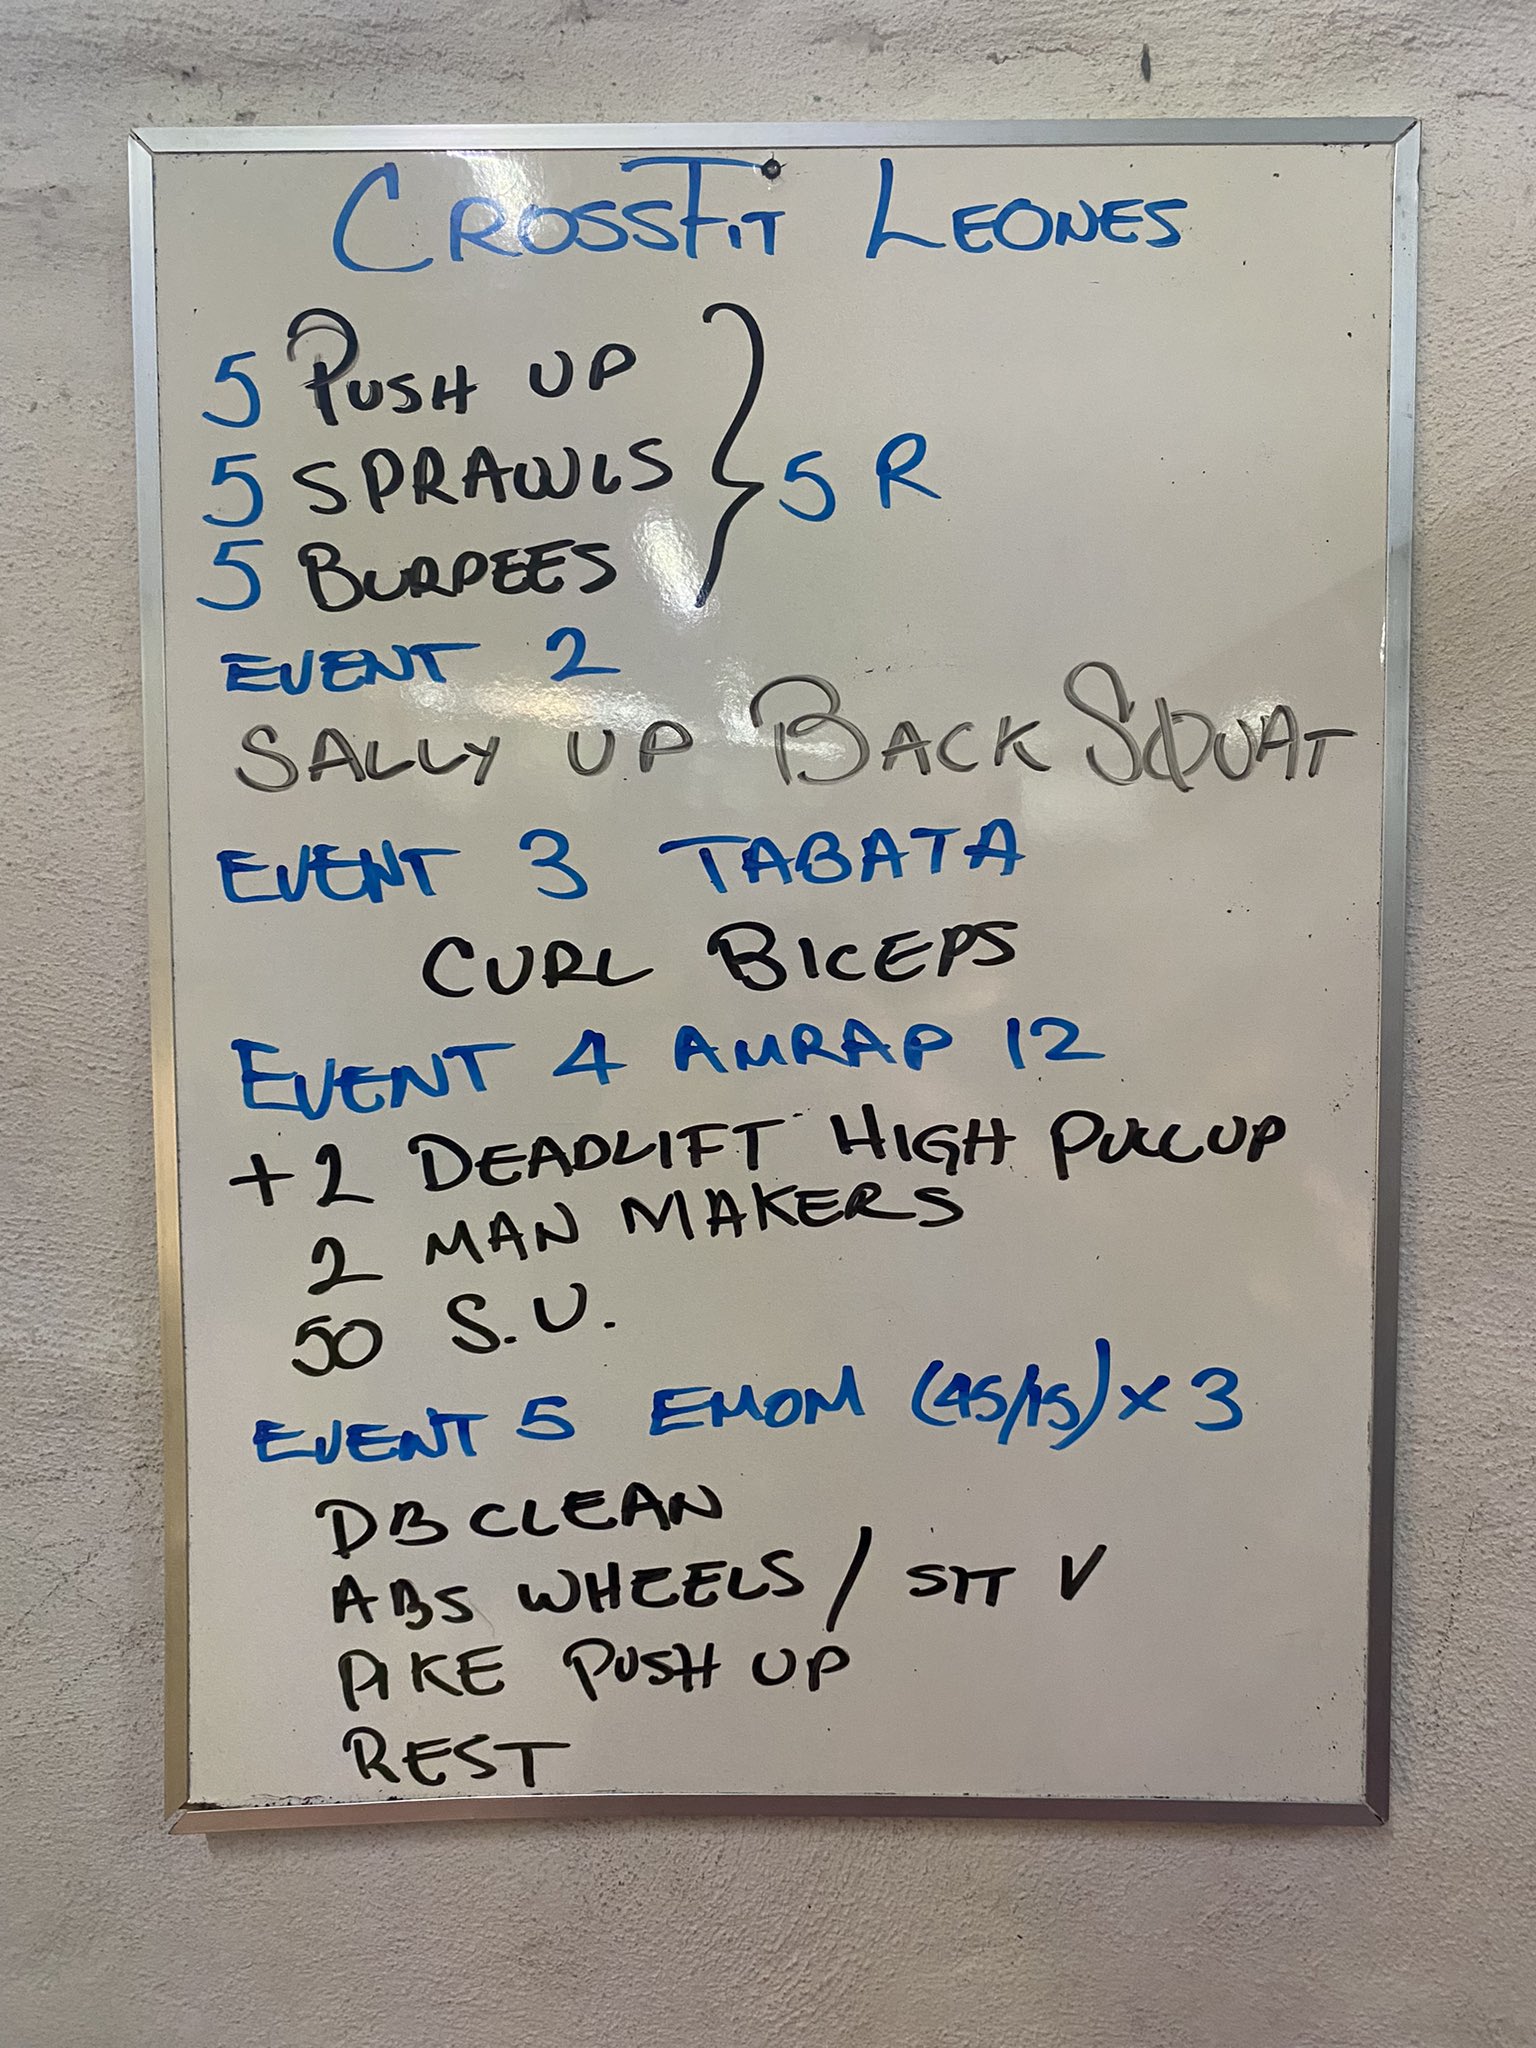 CROSSFIT LEONES
5 PUSH UP
5 SPRAWLS
5 BURPEES
} 5 R
EVENT 2
SALLY UP BACK SQUAT
EVENT 3 TABATA
CURL BICEPS
EVENT 4 AMRAP 12
+2 DEADLIFT HIGH PULL UP
2 MAN MAKERS
50 S.U.
EVENT 5 EMOM (45/15) x 3
DB CLEAN
ABS WHEELS / SIT V
PIKE PUSH UP
REST